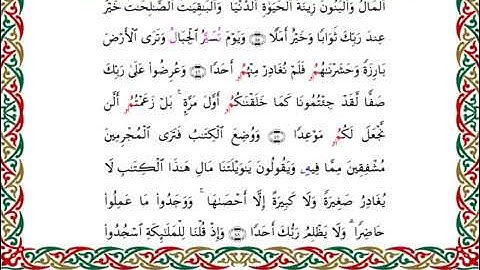 ٱلْمَالُ وَٱلْبَنُونَ زِينَةُ ٱلْحَيَوٰةِ ٱلدُّنْيَا ۖ وَٱلْبَٰقِيَٰتُ ٱلصَّٰلِحَٰتُ خَيْرٌ
عِندَ رَبِّكَ ثَوَابًا وَخَيْرٌ أَمَلًا وَيَوْمَ تُسَيَّرُ ٱلْجِبَالُ وَتَرَى ٱلْأَرْضَ
بَارِزَةً وَحَشَرْنَٰهُمُۥ فَلَمْ نُغَادِرْ مِنْهُمُۥ أَحَدًا وَعُرِضُوا۟ عَلَىٰ رَبِّكَ
صَفًّا لَّقَدْ جِئْتُمُونَا كَمَا خَلَقْنَٰكُمُۥ أَوَّلَ مَرَّةٍۭ ۚ بَلْ زَعَمْتُمُۥ أَلَّن
نَّجْعَلَ لَكُمُۥ مَوْعِدًا وَوُضِعَ ٱلْكِتَٰبُ فَتَرَى ٱلْمُجْرِمِينَ
مُشْفِقِينَ مِمَّا فِيهِۦ وَيَقُولُونَ يَٰوَيْلَتَنَا مَالِ هَٰذَا ٱلْكِتَٰبِ لَا
يُغَادِرُ صَغِيرَةً وَلَا كَبِيرَةً إِلَّآ أَحْصَىٰهَا ۚ وَوَجَدُوا۟ مَا عَمِلُوا۟
حَاضِرًا ۗ وَلَا يَظْلِمُ رَبُّكَ أَحَدًا وَإِذْ قُلْنَا لِلْمَلَٰٓئِكَةِ ٱسْجُدُوا۟